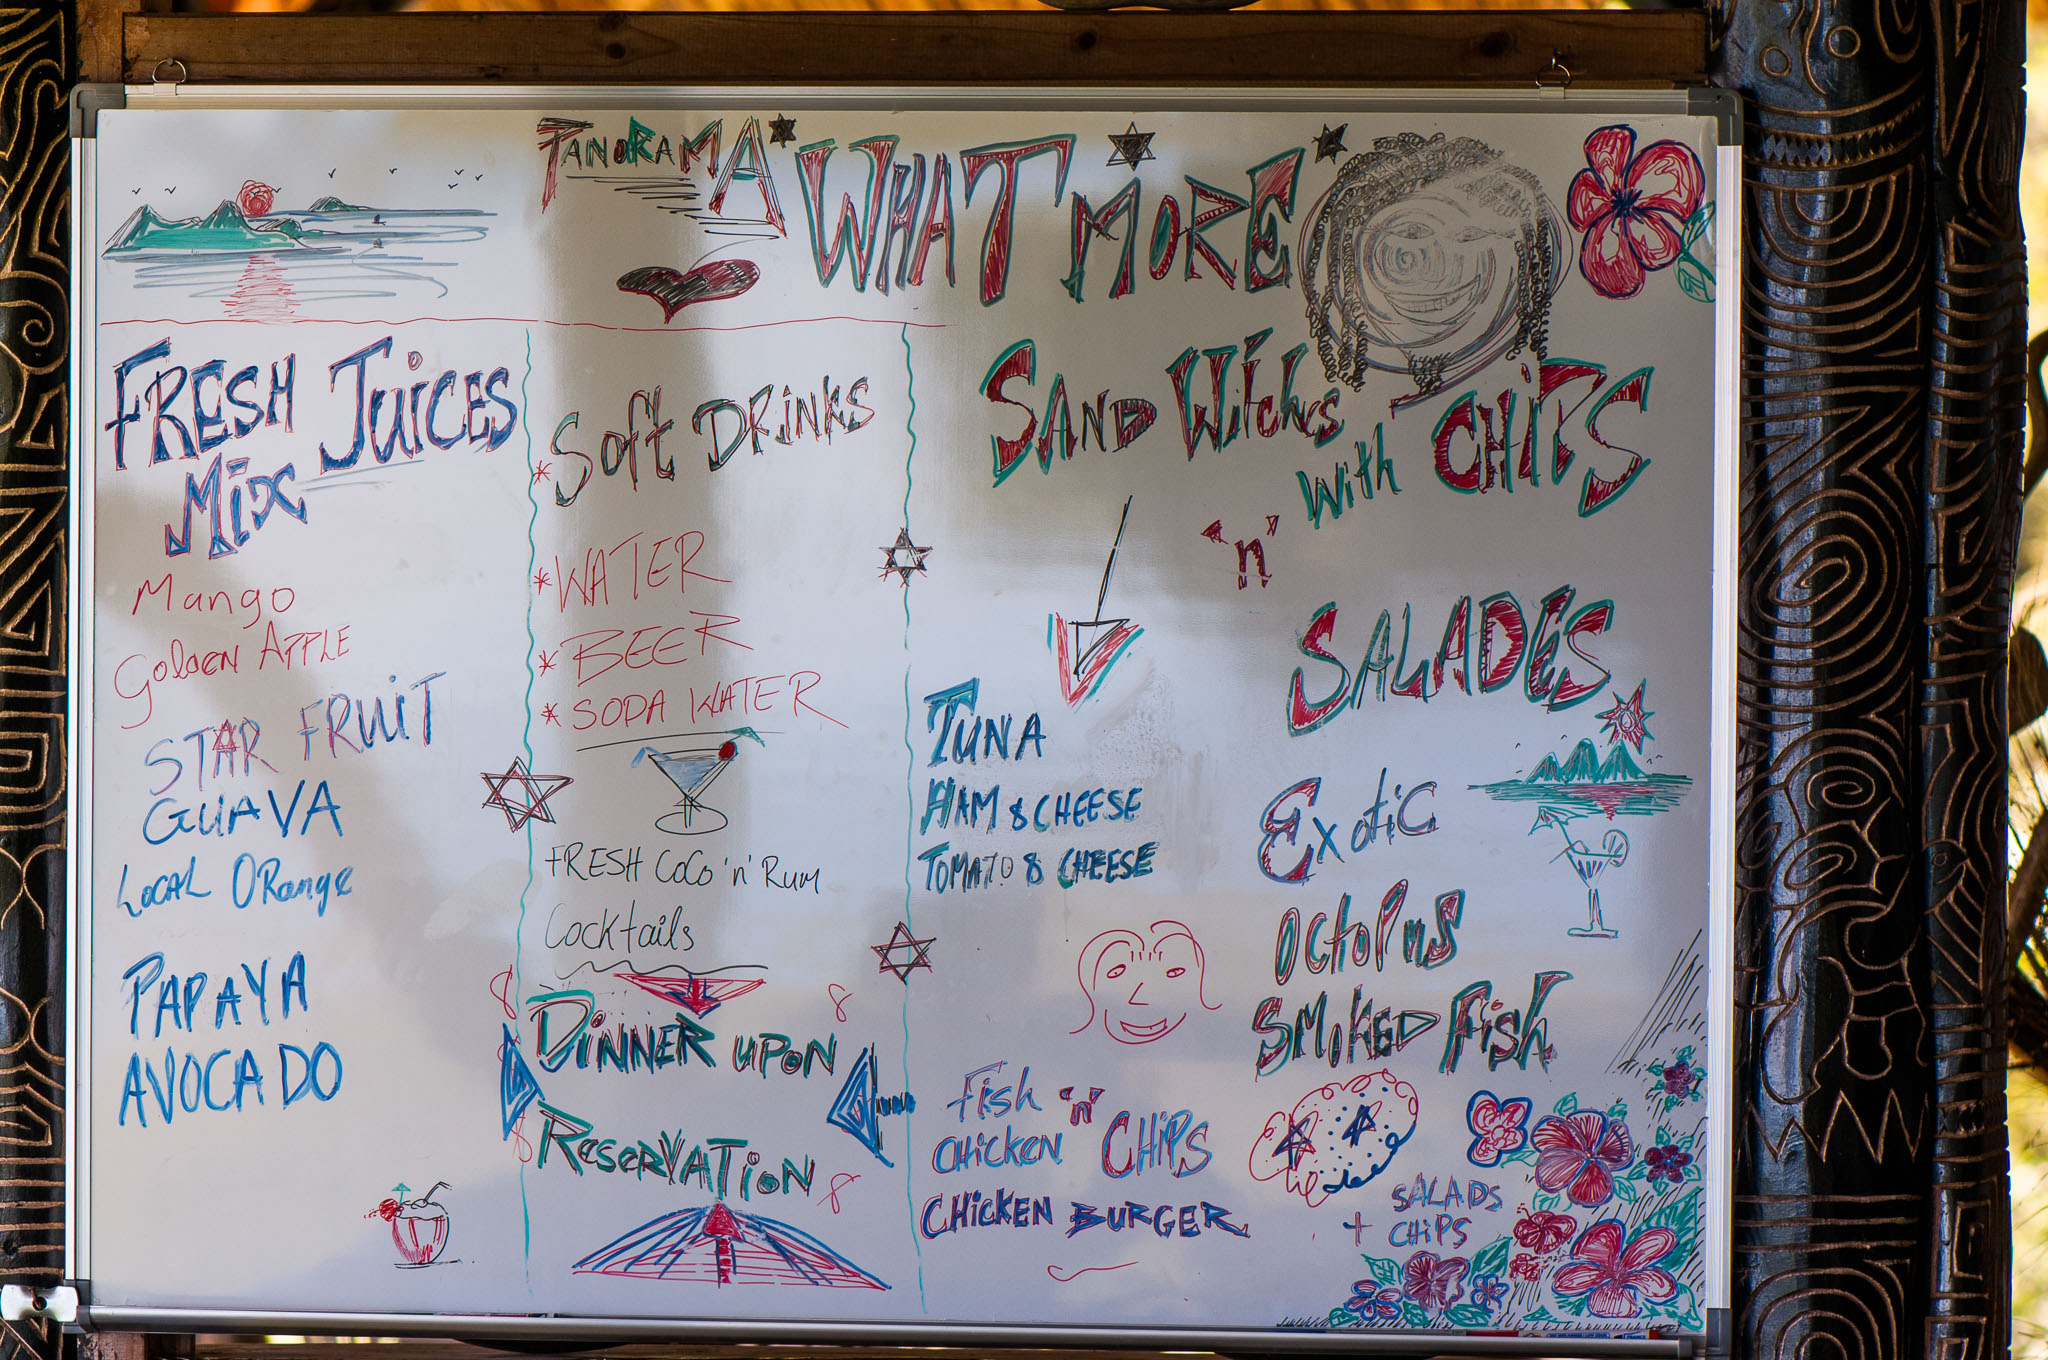 PANORAMA "WHAT MORE"
FRESH JUICES
MIX
Mango
Golden APPLE
STAR FRUIT
GUAVA
LOCAL ORange
PAPAYA
AVOCADO
* Soft DRinks
* WATER
* BEER
* SODA WATER
FRESH COCO 'n' Rum
Cocktails
DINNER UPON
RESERVATION
SAND WitcHes
With CHiPS
'n'
SALADES
TUNA
HAM & CHEESE
TOMATO & CHEESE
Exotic
OctoPus
SMOKED Fish
Fish 'n'
CHicKEN CHiPS
CHicKEN BURGER
+ SALADS
CHiPS